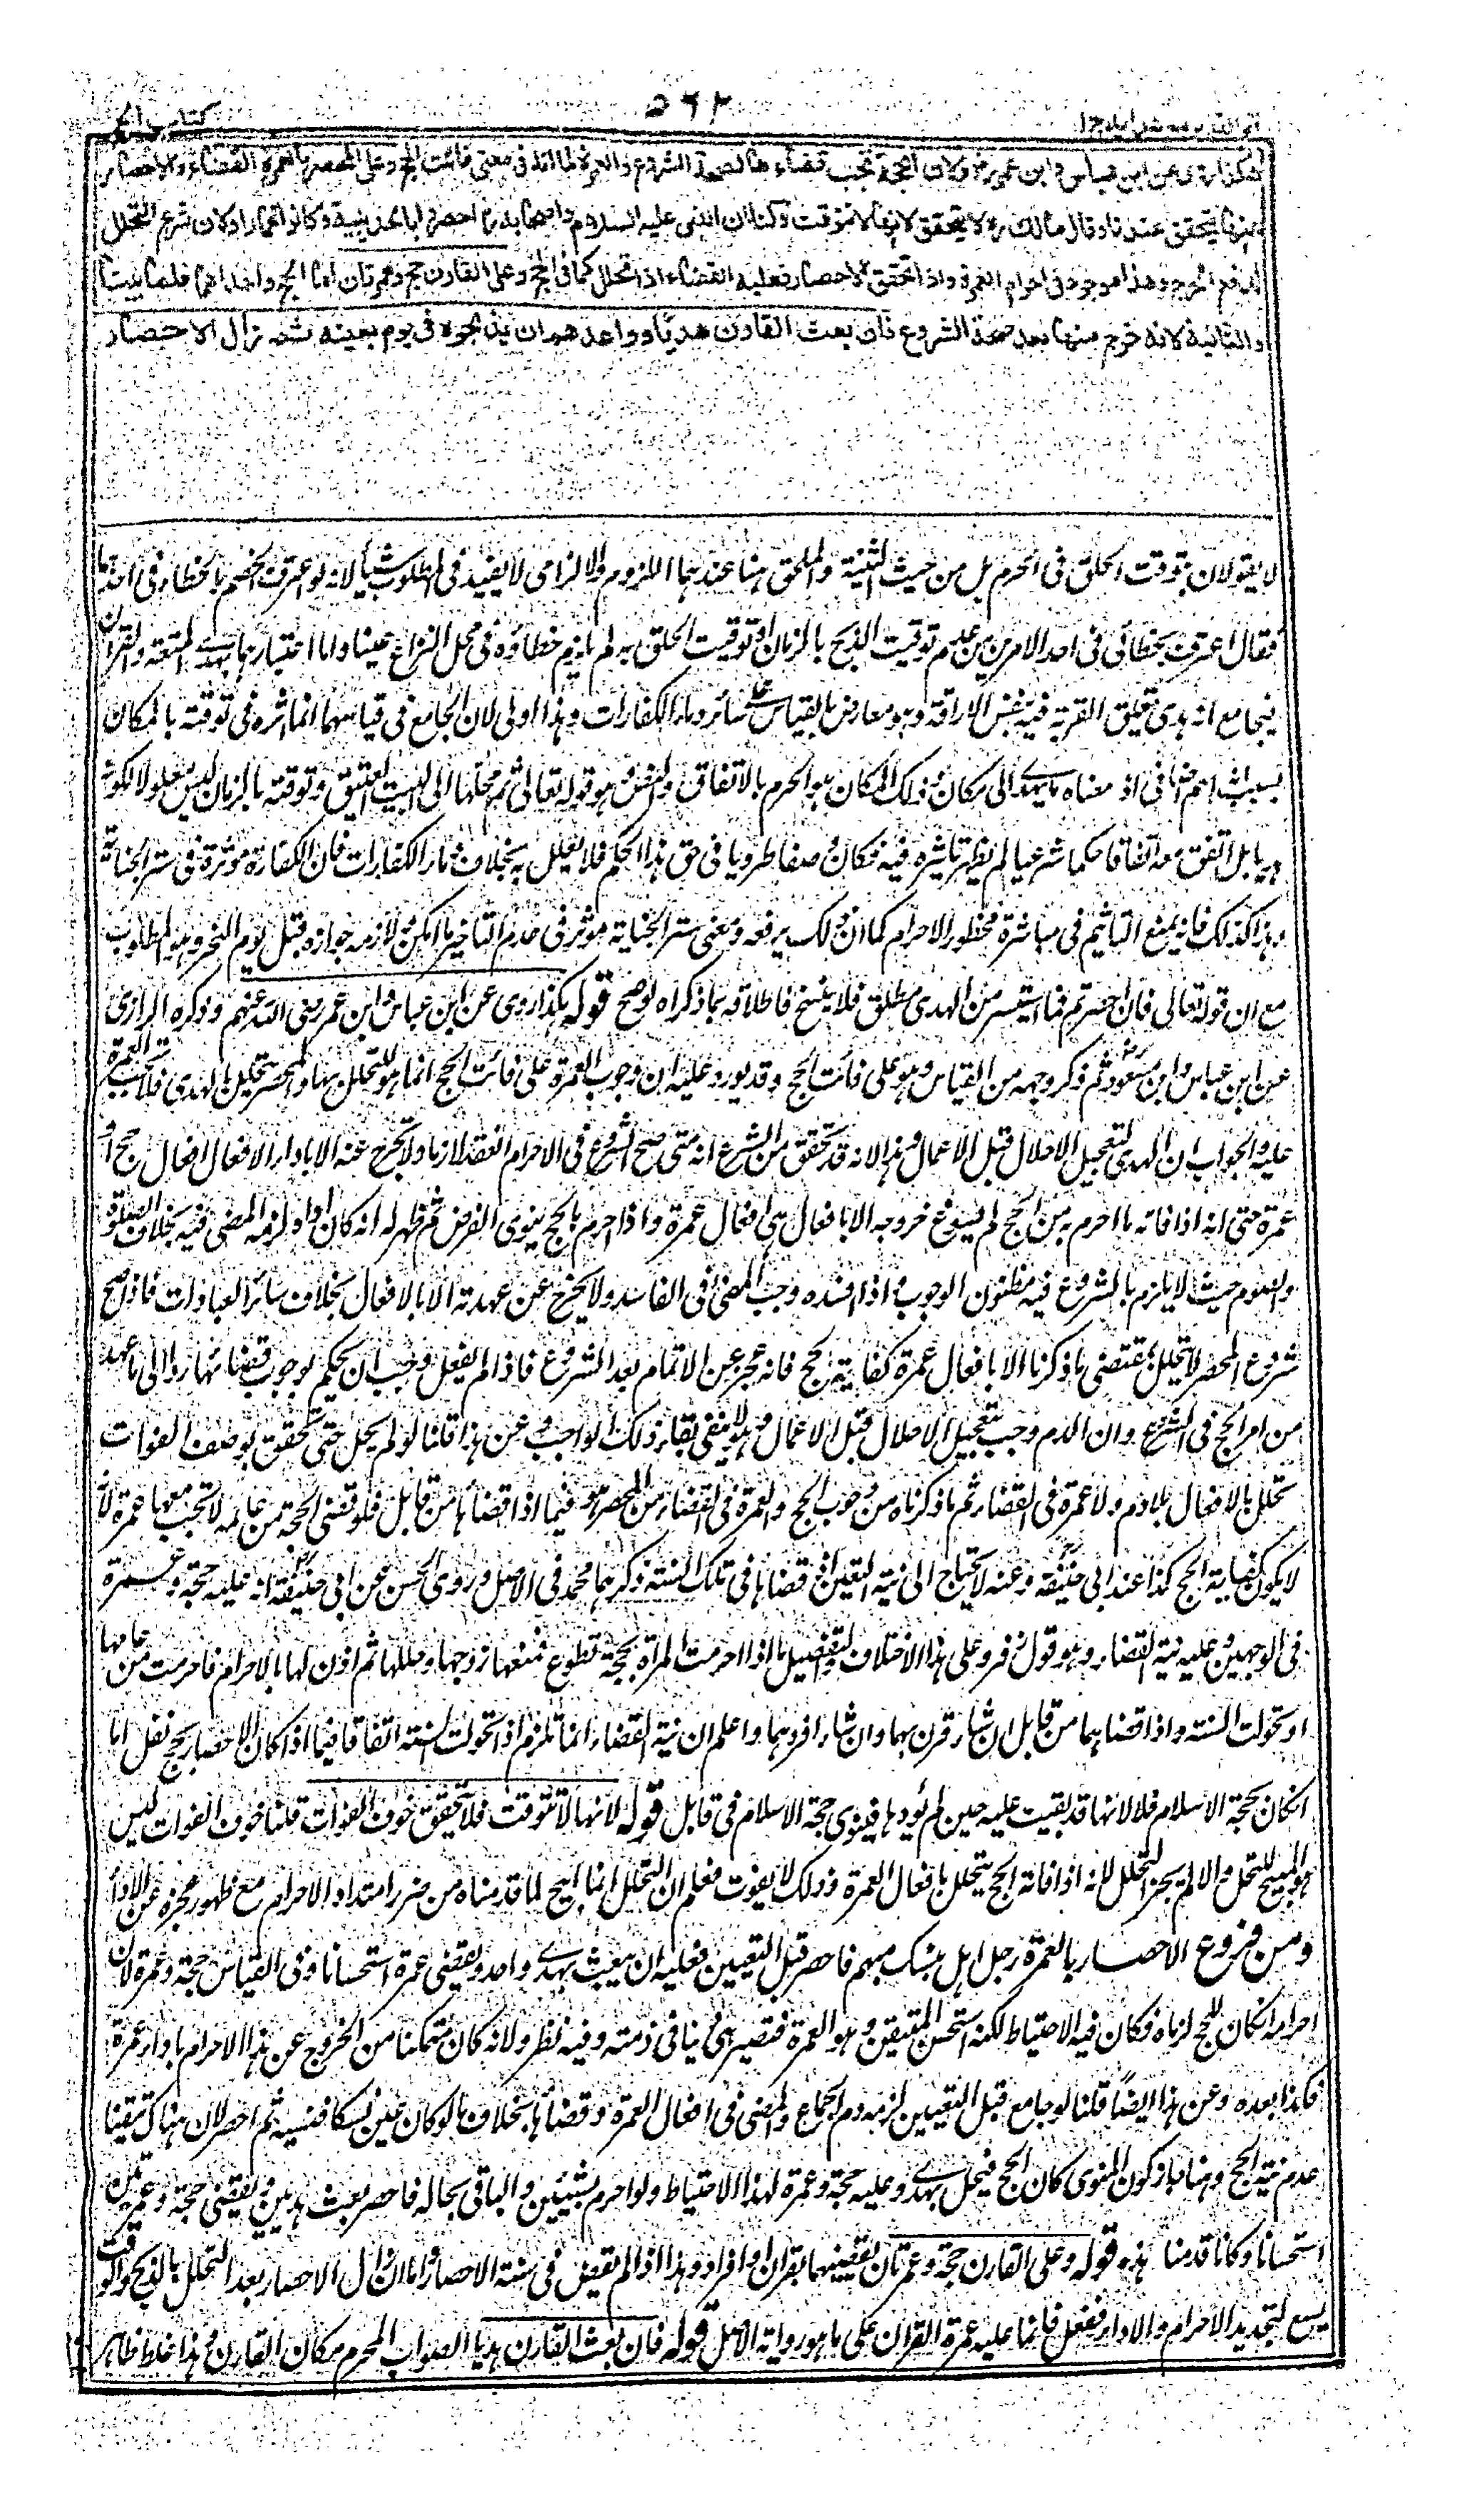 فتح القدير مع هدايه ج ا
٥٦٢
كتاب الحج
هكذا روى عن ابن عباس وابن عمر رض ولان الحجة تجب قضاء ها لصحة الشروع والعمرة لما انه فى معنى فائت الحج وعلى المحصر بالعمرة القضاء والاحصار
عنها يتحقق عندنا وقال مالك رح لا يتحقق لانها لا تتوقت ولنا ان النبى عليه السلام واصحابه رض احصروا بالحديبية وكانوا عمارا ولان شرع التحلل
لدفع الحرج وهذا موجود فى احرام العمرة واذا تحقق الاحصار فعليه القضاء اذا تحلل كما فى الحج وعلى القارن حج وعمرتان اما الحج واحدهما فلما بينا
والثانية لانه خرج منها بعد صحة الشروع فان بعث القارن هديا وواعدهم ان يذبحوه فى يوم بعينه ثم زال الاحصار
لا يقولان بتوقت الحلق فى الحرم بل من حيث السنية والملحق هنا عندهما اللزوم والالزامى لا يفيد فى المطلوب شيأ لانه لو اعترف الخصم بالخطاء فى احدهما
فقال اعترفت بخطائى فى احد الامرين من عدم توقيت الذبح بالزمان او توقيت الحلق به لم يلزم خطاؤه فى محل النزاع عينا واما اعتبارهما بهدى المتعة والقران
فبجامع انه هدى تعلق القربة فيه بنفس الاراقة وهو معارض بالقياس على سائر دماء الكفارات وهذا اولى لان الجامع فى قياسهما انما اثره فى توقته بالمكان
بسبب انه مضافى اذ معناه ما يهدى الى مكان وذلك المكان هو الحرم بالاتفاق والنص هو قوله تعالى ثم محلها الى البيت العتيق وتوقته بالزمان ليس معلولا لكونه
هديا بل اتفق معه اتفاقا حكما شرعيا لم يظهر تاثيره فيه فكان وصفا طرديا فى حق هذا الحكم فلا يعلل به بخلاف دماء الكفارات فان الكفارة مؤثرة فى ستر الجناية
وهذا كذلك فانه يمنع التاثيم فى مباشرة محظور الاحرام كما ان ذلك يرفعه ومعنى ستر الجناية مؤثر فى عدم التاخير ما امكن ولازمه جوازه قبل يوم النحر وهو المطلوب
مع ان قوله تعالى فان احصرتم فما استيسر من الهدى مطلق فلا ينسخ فاطلاقه بما ذكراه لو صح قوله هكذا روى عن ابن عباس وابن عمر رضى الله عنهم وذكره الرازى
عن ابن عباس وابن مسعود رض ثم ذكر وجهه من القياس وهو على فائت الحج وقد يورد عليه ان وجوب العمرة على فائت الحج انما هو للتحلل بها والمحصر تحلل بالهدى فلا تجب العمرة
عليه والجواب ان الهدى لتعجيل الاحلال قبل الاعمال وهذا لانه قد تحقق من الشرع انه متى صح الشروع فى الاحرام انعقد لازما ولا يخرج عنه الا باداء الافعال افعال حج او
عمرة حتى انه اذا فاته ما احرم به من الحج لم يسوغ خروجه الا بافعال هى افعال عمرة واذا احرم بالحج ينوى الفرض ثم ظهر له انه كان اداه لزمه المضى فيه بخلاف الصلوة
والصوم حيث لا يلزم بالشروع فيه مظنون الوجوب واذا افسده وجب المضى فى الفاسد ولا يخرج عن عهدته الا بالافعال بخلاف سائر العبادات فاذا صح
شروع المحصر لا يتحلل بمقتضى ما ذكرنا الا بافعال عمرة كفاية حج فانه عجز عن الاتمام بعد الشروع فاذا لم يفعل وجب ان يحكم بوجوب قضائها ردا الى ما عهد
من امر الحج فى الشرع وان الدم وجب لتعجيل الاحلال قبل الاعمال وهذا لا ينفى بقاء ذلك الواجب وعن هذا قلنا لو لم يحل حتى تحقق بوصف الفوات
تحلل بالافعال بلا دم ولا عمرة فى القضاء ثم ما ذكرناه من وجوب الحج والعمرة فى القضاء من المحصر هو فيما اذا قضاها من قابل فلو قضى الحجة من عامه لا تجب معها عمرة لانه
لا يكون كفاية الحج كذا عند ابى حنيفة وعنه لا يحتاج الى نية التعيين فى قضاها فى تلك السنة ذكرهما محمد فى الاصل وروى الحسن عن ابى حنيفة انه عليه حجة وعمرة
فى الوجهين وعليه نية القضاء وهو قول زفر وعلى هذا الاختلاف والتفصيل ما اذا احرمت المرأة بحجة تطوع فمنعها زوجها وحللها ثم اذن لها بالاحرام فاحرمت من عامها
او تحولت السنة واذا قضاهما من قابل ان شاء قرن بهما وان شاء افردهما واعلم ان نية القضاء انما تلزم اذا تحولت السنة اتفاقا فيما اذا كان الاحصار بحج نفل اما
ان كان بحجة الاسلام فلا لانها قد بقيت عليه حين لم يؤدها فينوى حجة الاسلام فى قابل قوله لانها لا تتوقت فلا يتحقق خوف الفوات قلنا خوف الفوات ليس
هو المبيح للتحلل والا لم يجز التحلل لانه اذا فاته الحج يتحلل بافعال العمرة وذلك لا يفوت فعلم ان التحلل انما ابيح لما قدمناه من ضرر امتداد الاحرام مع ظهور عجزه عن الاداء
ومن فروع الاحصار بالعمرة رجل اهل بنسك مبهم فاحصر قبل التعيين فعليه ان يبعث بهدى واحد ويقضى عمرة استحسانا وفى القياس حجة وعمرة لان
احرامه ان كان للحج لزماه فكان فيه الاحتياط لكنه استحسن المتيقن وهو العمرة فتصير هى دينا فى ذمته وفيه نظر ولانه كان متمكنا من الخروج عن هذا الاحرام باداء عمرة
فكذا بعده وعن هذا ايضا قلنا لو جامع قبل التعيين لزمه دم الجماع والمضى فى افعال العمرة وقضاؤها بخلاف ما لو كان عين نسكا فنسيه ثم احصر لان هناك تيقنا
عدم نية الحج وهنا جاز كون المنوى كان الحج فيحل بهدى وعليه حجة وعمرة لهذا الاحتياط ولو احرم بشيئين والباقى بحاله فاحصر بعث هديين ويقضى حجة وعمرتين
استحسانا وكانا قدمنا هذه قوله وعلى القارن حجة وعمرتان يقضيهما بقران او افراد وهذا اذا لم يقض فى سنة الاحصار واما ان زال الاحصار بعد التحلل بالذبح والوقت
يسع لتجديد الاحرام والاداء ففعل فانما عليه عمرة القران على ما هو رواية الاصل قوله فان بعث القارن هديا الصواب المحرم مكان القارن وهذا غلط ظاهر